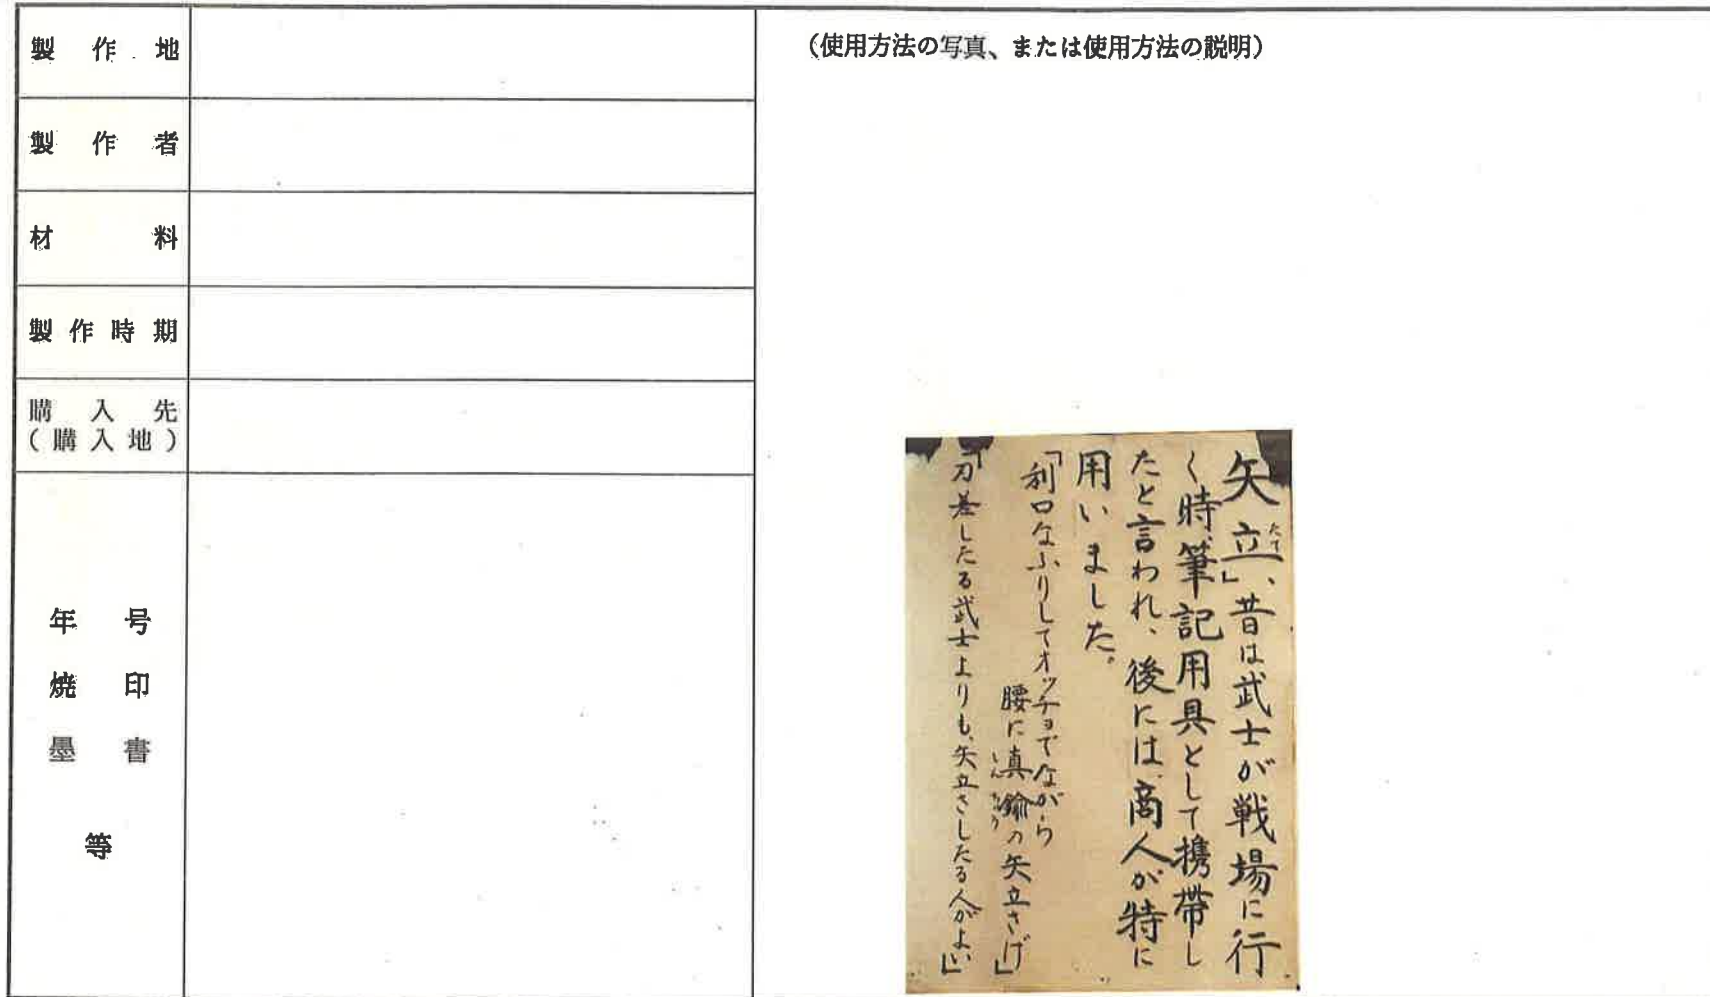 製作地
製作者
材料
製作時期
購入先
(購入地)
年号
焼印
墨書
等
(使用方法の写真、または使用方法の説明)
矢立」、昔は武士が戦場に行
たて
く時、筆記用具として携帯し
たと言われ、後には、商人が特に
用いました。
「利口なふりしてオッチョでながら
腰に真鍮の矢立さげ」
しんちう
「刀差したる武士よりも、矢立さしたる人がよい」